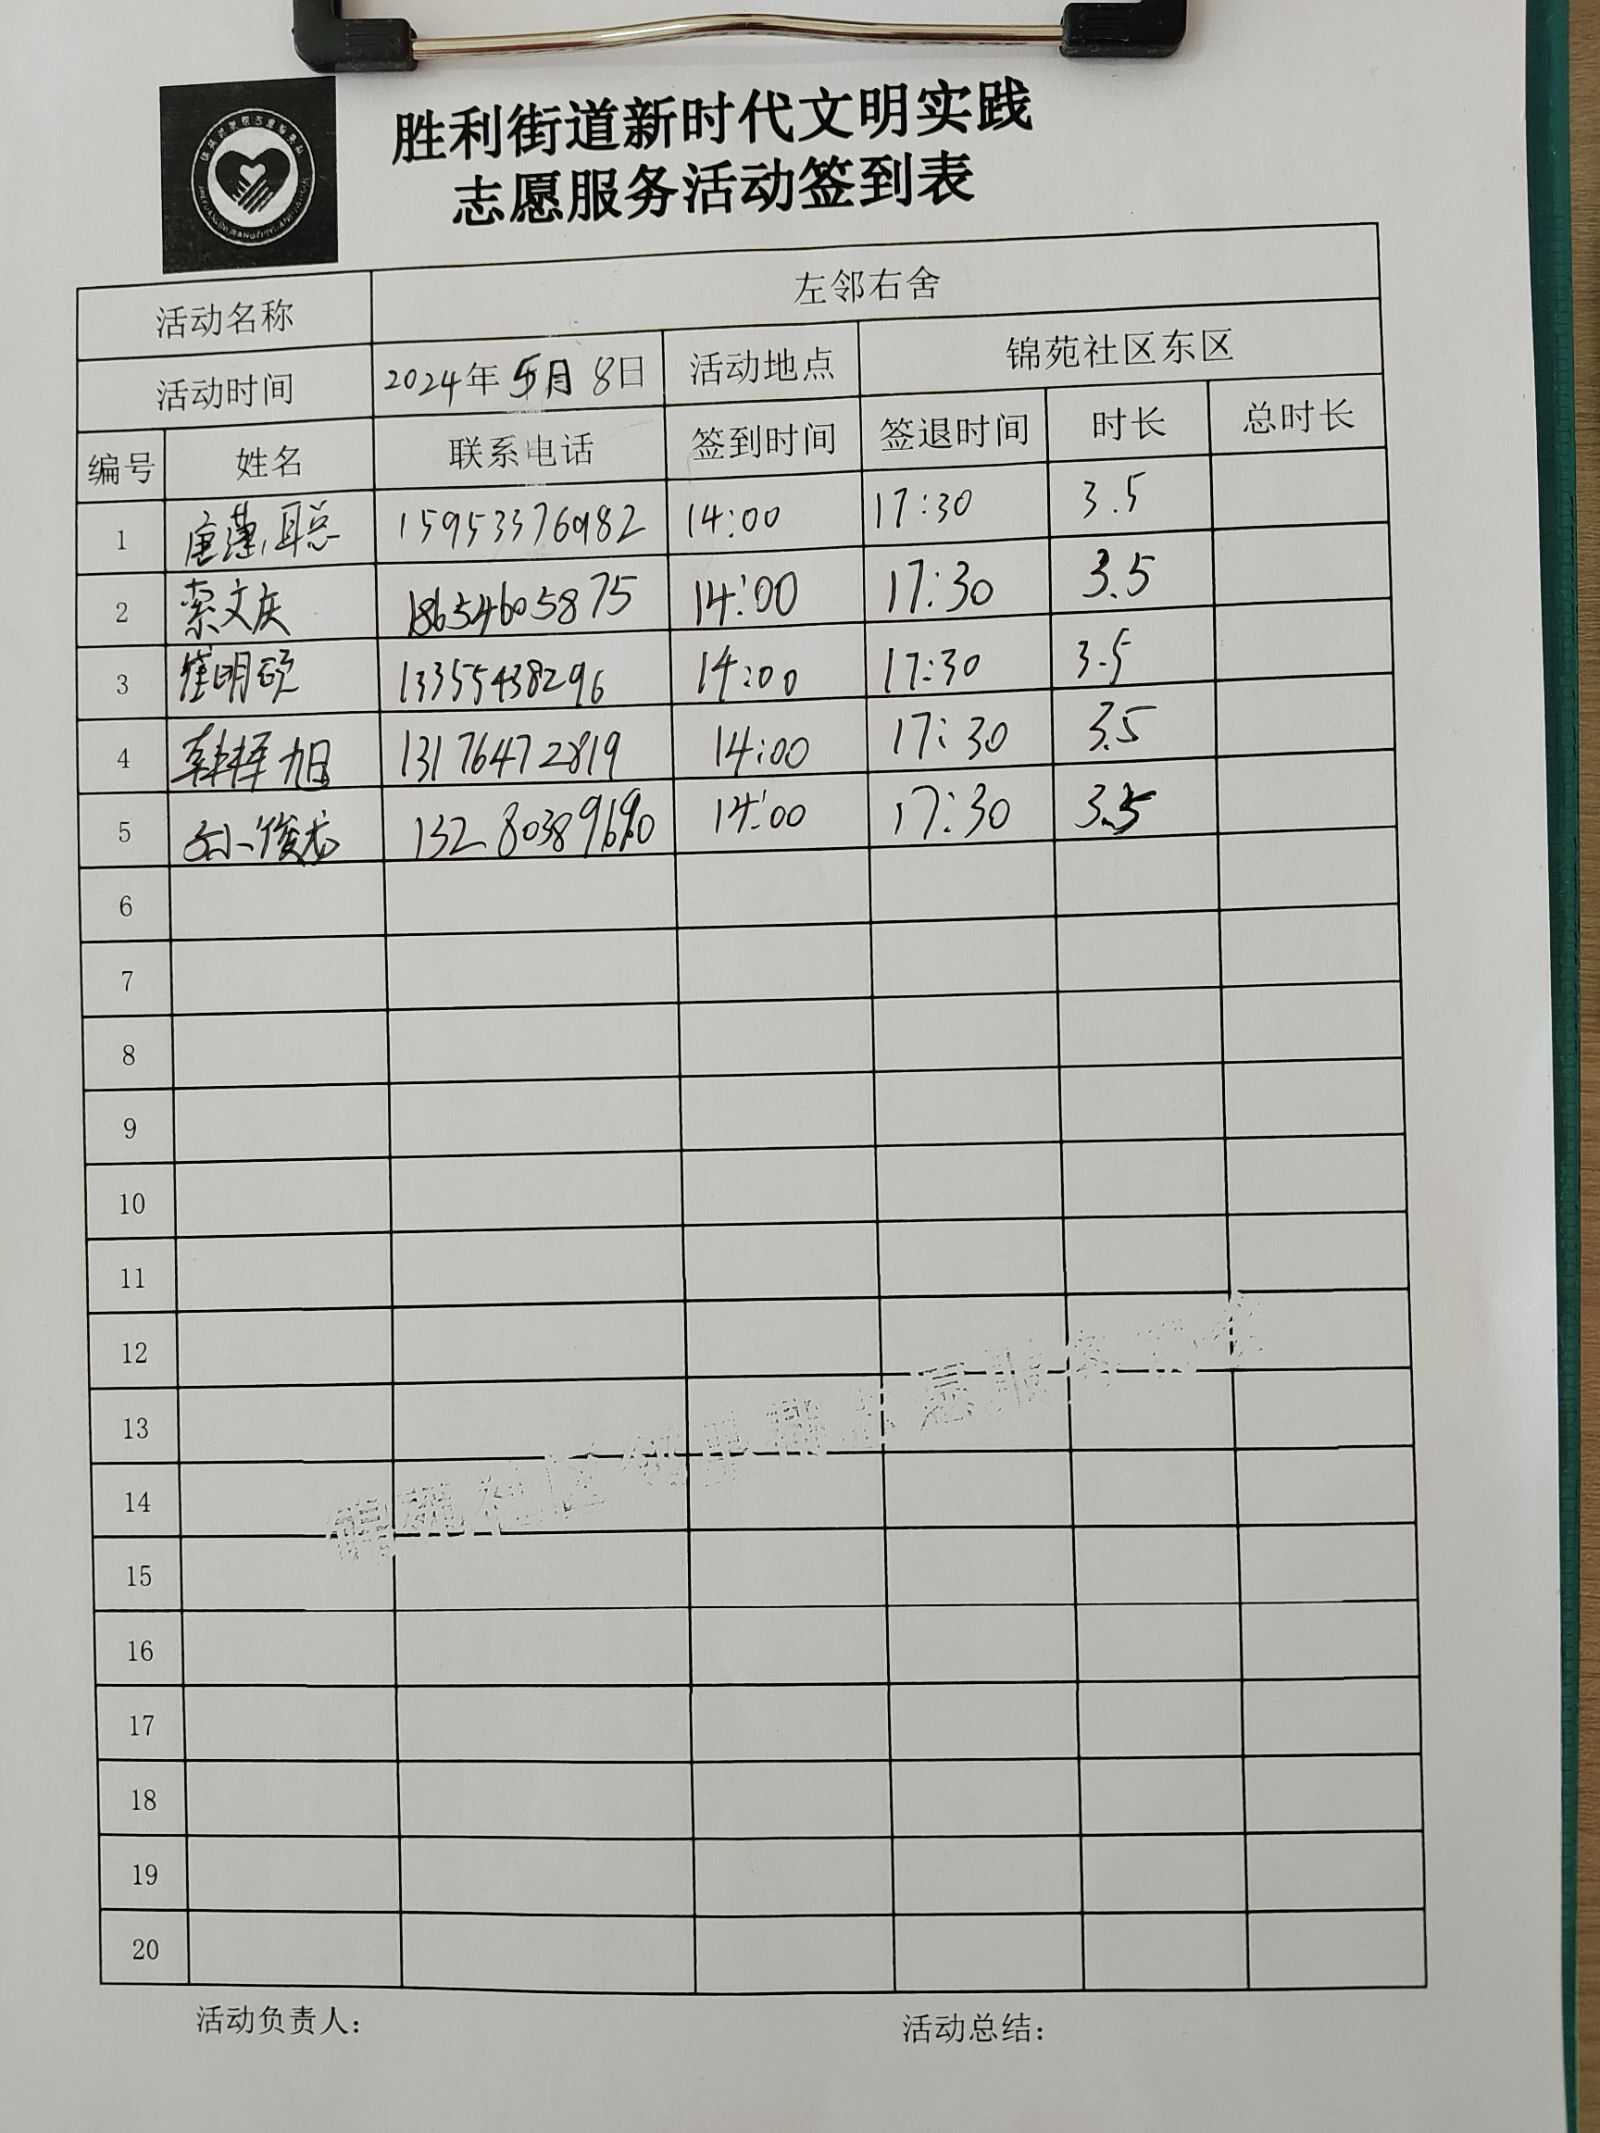 胜利街道新时代文明实践
志愿服务活动签到表
活动名称 左邻右舍
活动时间 2024年 5月 8日 活动地点 锦苑社区东区
编号 姓名 联系电话 签到时间 签退时间 时长 总时长
1 唐潇聪 15953376982 14:00 17:30 3.5
2 索文庆 18654605875 14:00 17:30 3.5
3 崔明硕 13355438296 14:00 17:30 3.5
4 韩择旭 13176472819 14:00 17:30 3.5
5 孙俊龙 14:00 17:30 3.5
6
7
8
9
10
11
12
13
14
15
16
17
18
19
20
活动负责人：
活动总结：